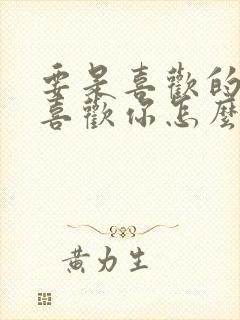 要是喜歡的
喜歡你怎麼
黃力生